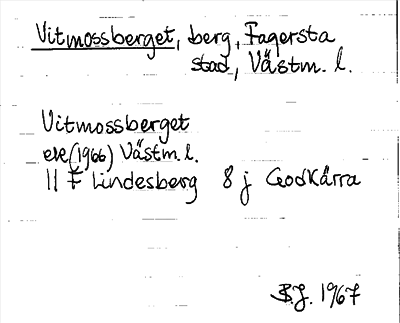 Vitmossberget, berg, Fagersta
stad, Västm. l.
Vitmossberget
eve (1966) Västm. l.
11 F Lindesberg 8 j GeodKårra
B.J. 1967